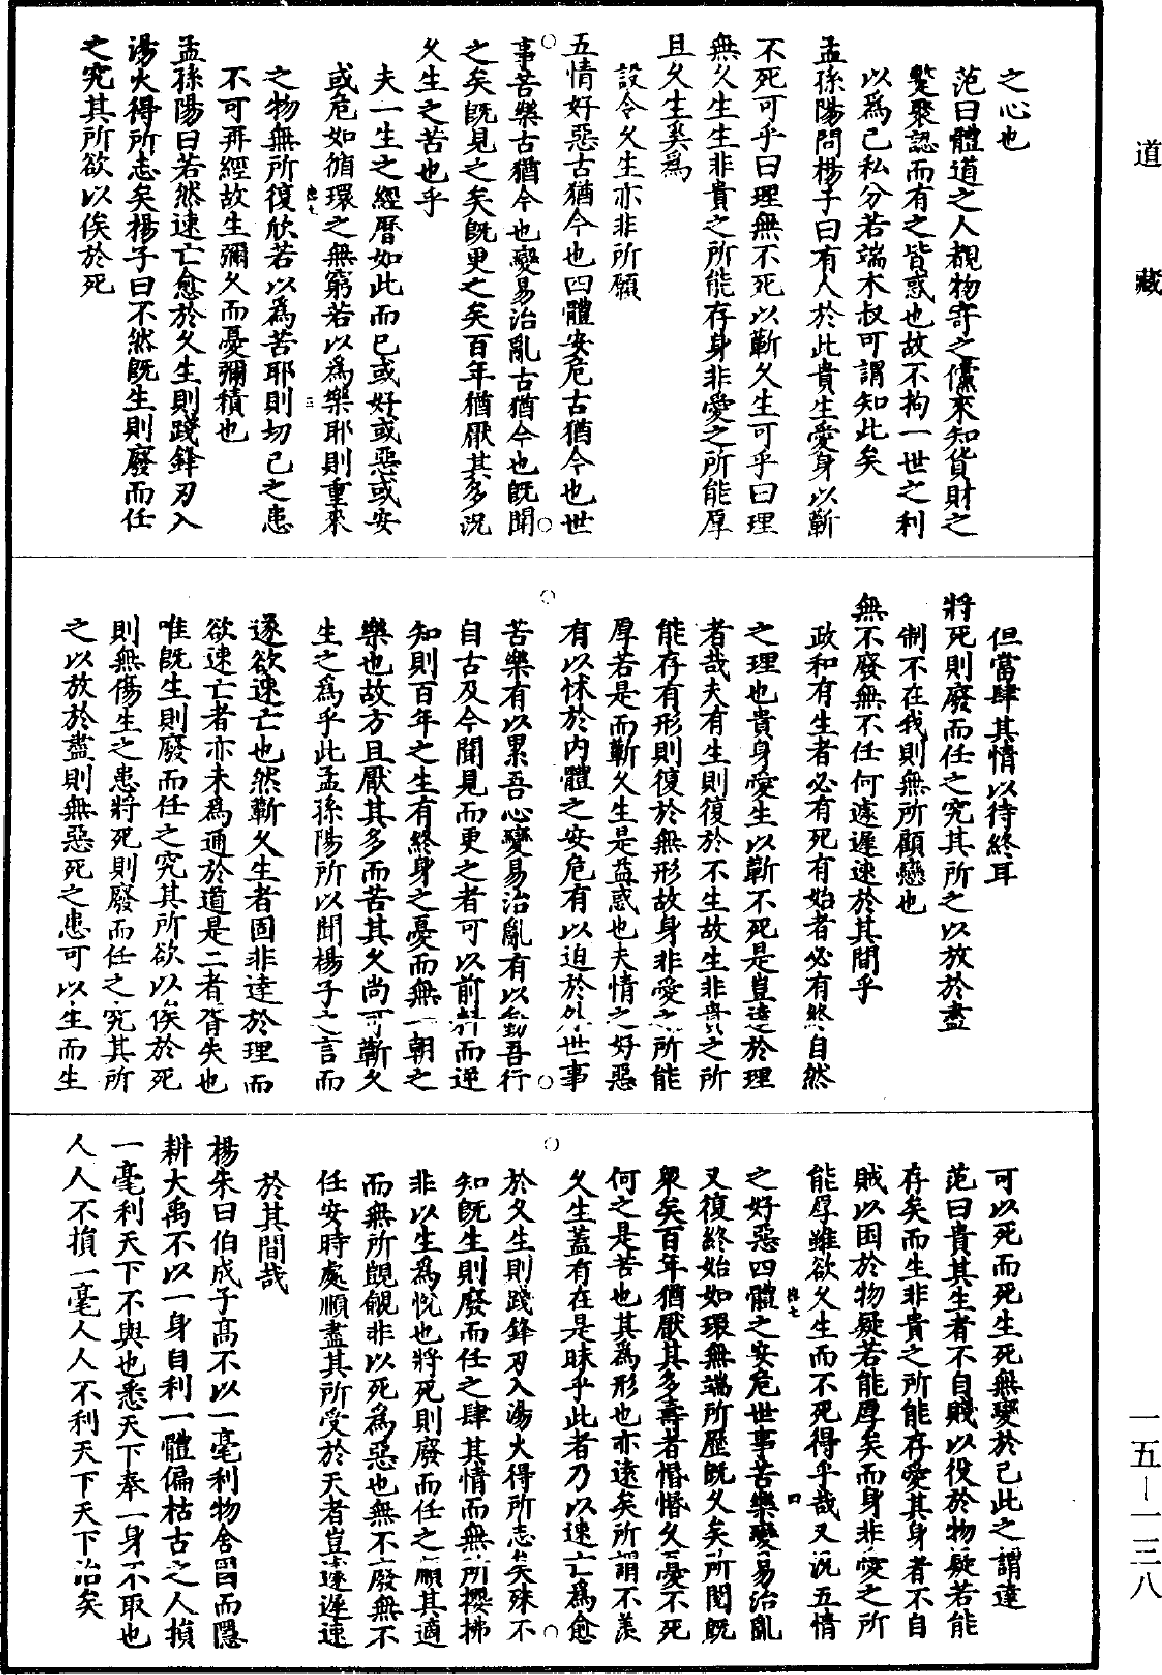 之心也
范曰體道之人覩物寄之儻來知貨財之
蹔聚認而有之皆惑也故不拘一世之利
以為己私分若端木叔可謂知此矣
孟孫陽問楊子曰有人於此貴生愛身以蘄
不死可乎曰理無不死以蘄久生可乎曰理
無久生生非貴之所能存身非愛之所能厚
且久生奚為
設令久生亦非所願
五情好惡古猶今也四體安危古猶今也世
事苦樂古猶今也變易治亂古猶今也既聞
之矣既見之矣既更之矣百年猶厭其多況
久生之苦也乎
夫一生之經曆如此而已或好或惡或安
或危如循環之無窮若以為樂耶則重來
之物無所復欣若以為苦耶則切己之患
不可再經故生彌久而憂彌積也
孟孫陽曰若然速亡愈於久生則踐鋒刃入
湯火得所志矣楊子曰不然既生則廢而任
之究其所欲以俟於死
但當肆其情以待終耳
將死則廢而任之究其所之以放於盡
制不在我則無所顧戀也
無不廢無不任何遽遲速於其間乎
政和有生者必有死有始者必有終自然
之理也貴身愛生以蘄不死是豈達於理
者哉夫有生則復於不生故生非貴之所
能存有形則復於無形故身非愛之所能
厚若是而蘄久生是益惑也夫情之好惡
有以怵於內體之安危有以迫於外世事
苦樂有以累吾心變易治亂有以動吾行
自古及今聞見而更之者可以前料而逆
知則百年之生有終身之憂而無一朝之
樂也故方且厭其多而苦其久尚可蘄久
生之為乎此孟孫陽所以聞楊子之言而
遂欲速亡也然蘄久生者固非達於理而
欲速亡者亦未為通於道是二者胥失也
唯既生則廢而任之究其所欲以俟於死
則無傷生之患將死則廢而任之究其所
之以放於盡則無惡死之患可以生而生
可以死而死生死無變於己此之謂達
范曰貴其生者不自賤以役於物疑若能
存矣而生非貴之所能存愛其身者不自
賊以困於物疑若能厚矣而身非愛之所
能厚雖欲久生而不死得乎哉又況五情
之好惡四體之安危世事苦樂變易治亂
又復終始如環無端所歷既久矣所閱既
眾矣百年猶厭其多壽者惛惛久憂不死
何之是苦也其為形也亦遠矣所謂不羨
久生蓋有在是昧乎此者乃以速亡為愈
於久生則踐鋒刃入湯火得所志矣殊不
知既生則廢而任之肆其情而無所攖拂
非以生為悅也將死則廢而任之願其適
而無所覬覦非以死為惡也無不廢無不
任安時處順盡其所受於天者豈遽遲速
於其間哉
楊朱曰伯成子高不以一毫利物舍國而隱
耕大禹不以一身自利一體偏枯古之人損
一毫利天下不與也悉天下奉一身不取也
人人不損一毫人人不利天下天下治矣
道藏
一五-一三八